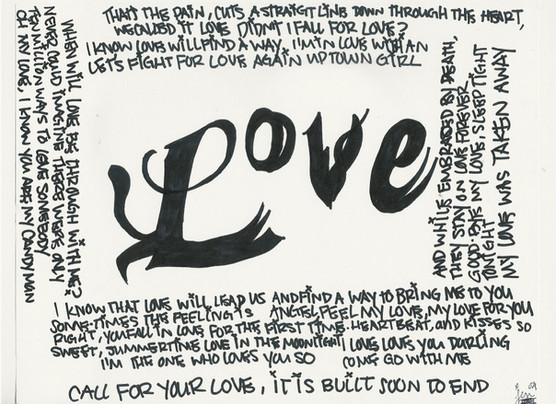 THAT'S THE PAIN, CUTS A STRAIGT LINE DOWN THROUGH THE HEART,
WE CALLED IT LOVE DIDN'T I FALL FOR LOVE?
I KNOW LOVE WILL FIND A WAY, I'M IN LOVE WITH AN
LET'S FIGHT FOR LOVE AGAIN UPTOWN GIRL
WHEN WILL LOVE BE THROUGH WITH ME?
NEVER COULD IMAGINE THERE WERE ONLY
TEN MILLION WAYS TO LOVE SOMEBODY
OH MY LOVE, I KNOW YOU ARE MY CANDY MAN
Love
AND WHILE EMBRACED BY DEATH,
THEY STAY ON LOVE FOREVER
GOOD-BYE MY LOVE, SLEEP TIGHT
TONIGHT
MY LOVE WAS TAKEN AWAY
I KNOW THAT LOVE WILL LEAD US AND FIND A WAY TO BRING ME TO YOU
SOME-TIMES THE FEELING IS ANGEL, FEEL MY LOVE, MY LOVE FOR YOU
RIGHT, YOU FALL IN LOVE FOR THE FIRST TIME. HEARTBEAT, AND KISSES SO
SWEET, SUMMERTIME LOVE IN THE MOONLIGHT I LOVE LOVE YOU DARLING
I'M THE ONE WHO LOVES YOU SO COME GO WITH ME
CALL FOR YOUR LOVE, IT IS BUILT SOON TO END